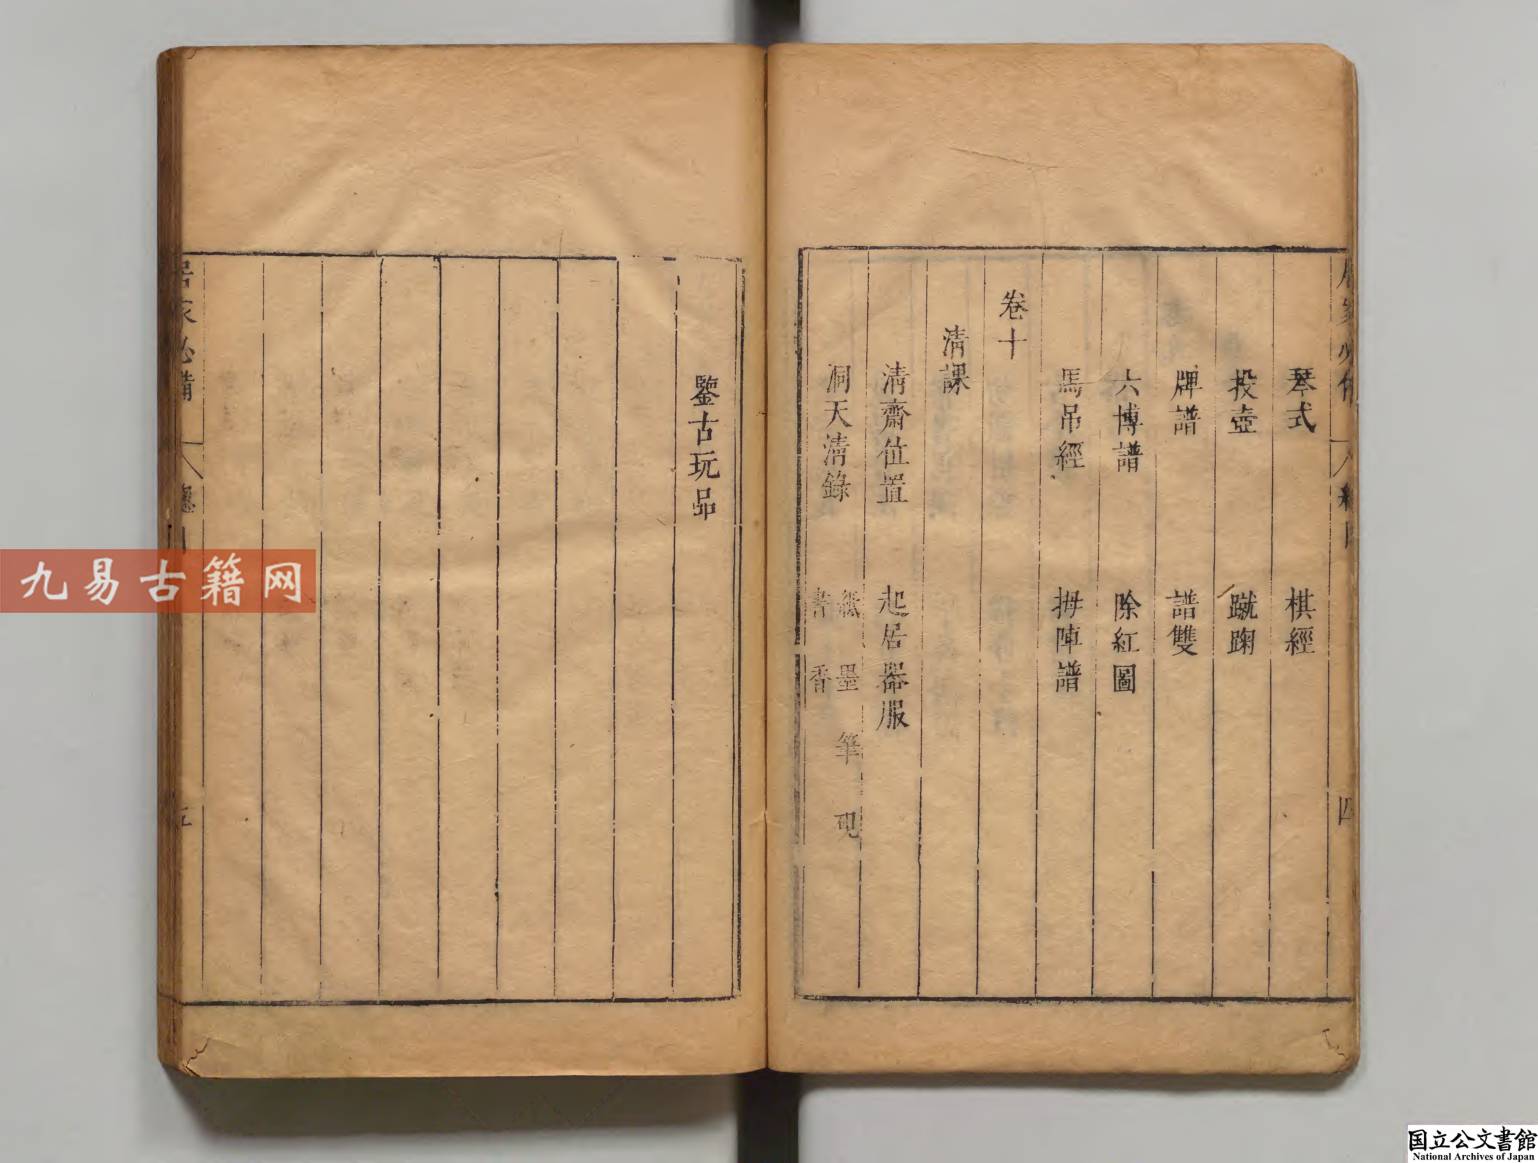 琴式　棋經
投壺　蹴踘
牌譜　譜雙
六博譜　除紅圖
馬吊經　拇陣譜
卷十
清課
清齋位置　起居器服
洞天清錄　紙　墨　筆　硯
書　香
四
鑒古玩品
居家必備　總目
五
九易古籍网
国立公文書館
National Archives of Japan